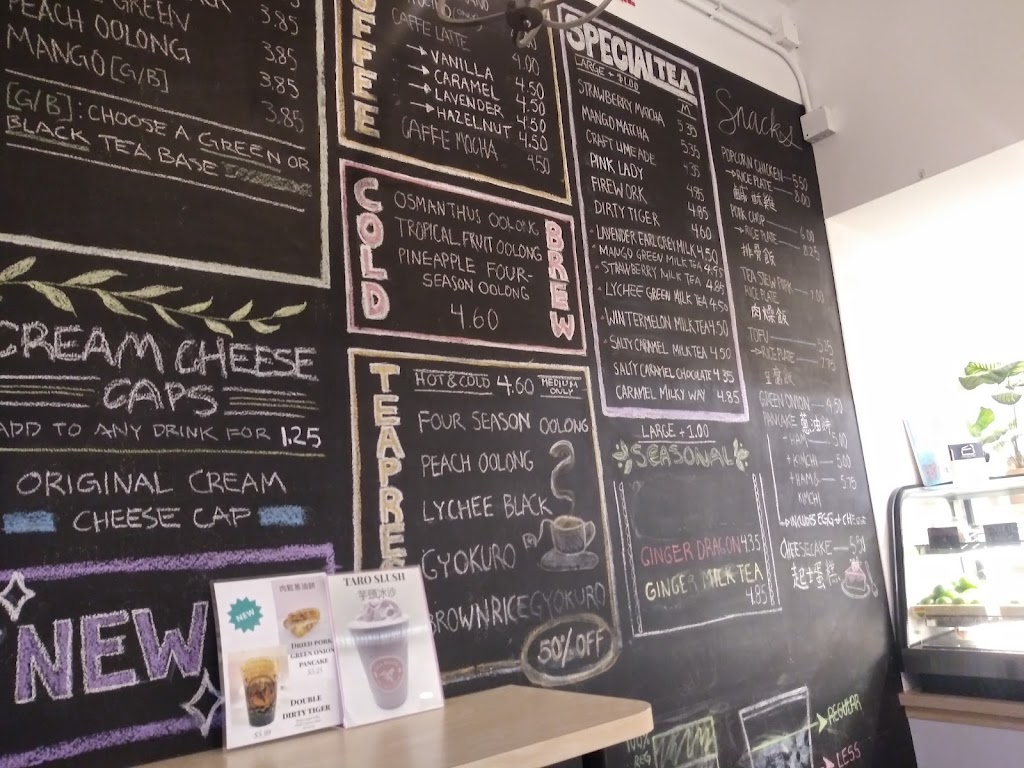 GREEN 3.85
PEACH OOLONG 3.85
MANGO [G/B] 3.85
3.85
[G/B]: CHOOSE A GREEN OR
BLACK TEA BASE
CREAM CHEESE
CAPS
ADD TO ANY DRINK FOR 1.25
ORIGINAL CREAM
CHEESE CAP
NEW
CAFFE LATTE 4.00
→VANILLA 4.50
→CARAMEL 4.50
→LAVENDER 4.50
→HAZELNUT 4.50
CAFFE MOCHA 4.50
COLD
BREW
OSMANTHUS OOLONG
TROPICAL FRUIT OOLONG
PINEAPPLE FOUR-
SEASON OOLONG
4.60
HOT & COLD 4.60 MEDIUM ONLY
FOUR SEASON OOLONG
PEACH OOLONG
LYCHEE BLACK
GYOKURO
BROWN RICE GYOKURO
50% OFF
SPECIALTEA
LARGE + $1.00
M
STRAWBERRY MACHA 5.35
MANGO MATCHA 5.35
CRAFT LIMEADE 4.35
PINK LADY
FIREWORK 4.85
DIRTY TIGER 4.85
4.60
LAVENDER EARL GREY MILK 4.50
MANGO GREEN MILK TEA 4.95
STRAWBERRY MILK TEA 4.85
LYCHEE GREEN MILK TEA 4.50
WINTERMELON MILK TEA 4.50
SALTY CARAMEL MILK TEA 4.50
SALTY CARAMEL CHOCOLATE 4.35
CARAMEL MILKY WAY 4.85
LARGE + 1.00
SEASONAL
GINGER DRAGON 4.35
GINGER MILK TEA
4.85
Snacks
POPCORN CHICKEN 5.50
→RICE PLATE 8.00
鹹酥雞
PORK CHOP 6.00
→RICE PLATE 8.25
排骨飯
TEA STEW PORK
RICE PLATE 7.00
肉燥飯
TOFU 5.25
→RICE PLATE
豆腐飯
GREEN ONION 4.50
PANCAKE 蔥油餅
+ HAM 5.00
+ KIMCHI 5.00
+ HAM & 5.75
KIMCHI
→INCLUDES EGG + CHEESE
CHEESECAKE 5.50
起士蛋糕
REGULAR
LESS
NEW
DRIED PORK
GREEN ONION
PANCAKE
$5.25
DOUBLE
DIRTY TIGER
$5.99
TARO SLUSH
芋頭冰沙